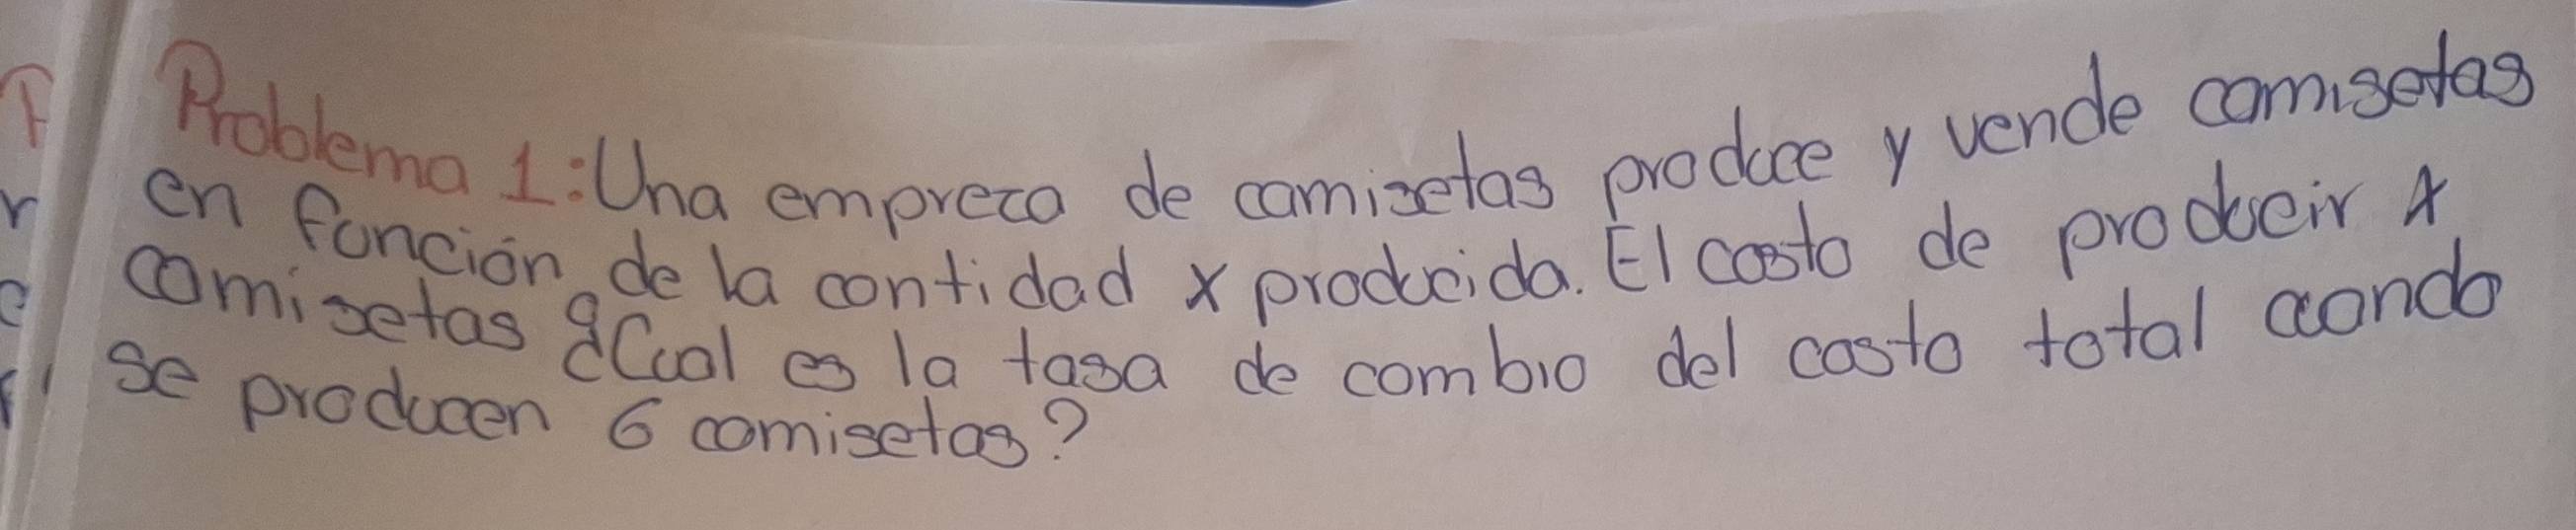 Problema 1: Una empreza de camisetas produce y vende camisetas
en función de la cantidad x producida. El costo de producir x
camisetas ¿Cual es la tasa de cambio del costo total cuando
se producen 6 camisetas?